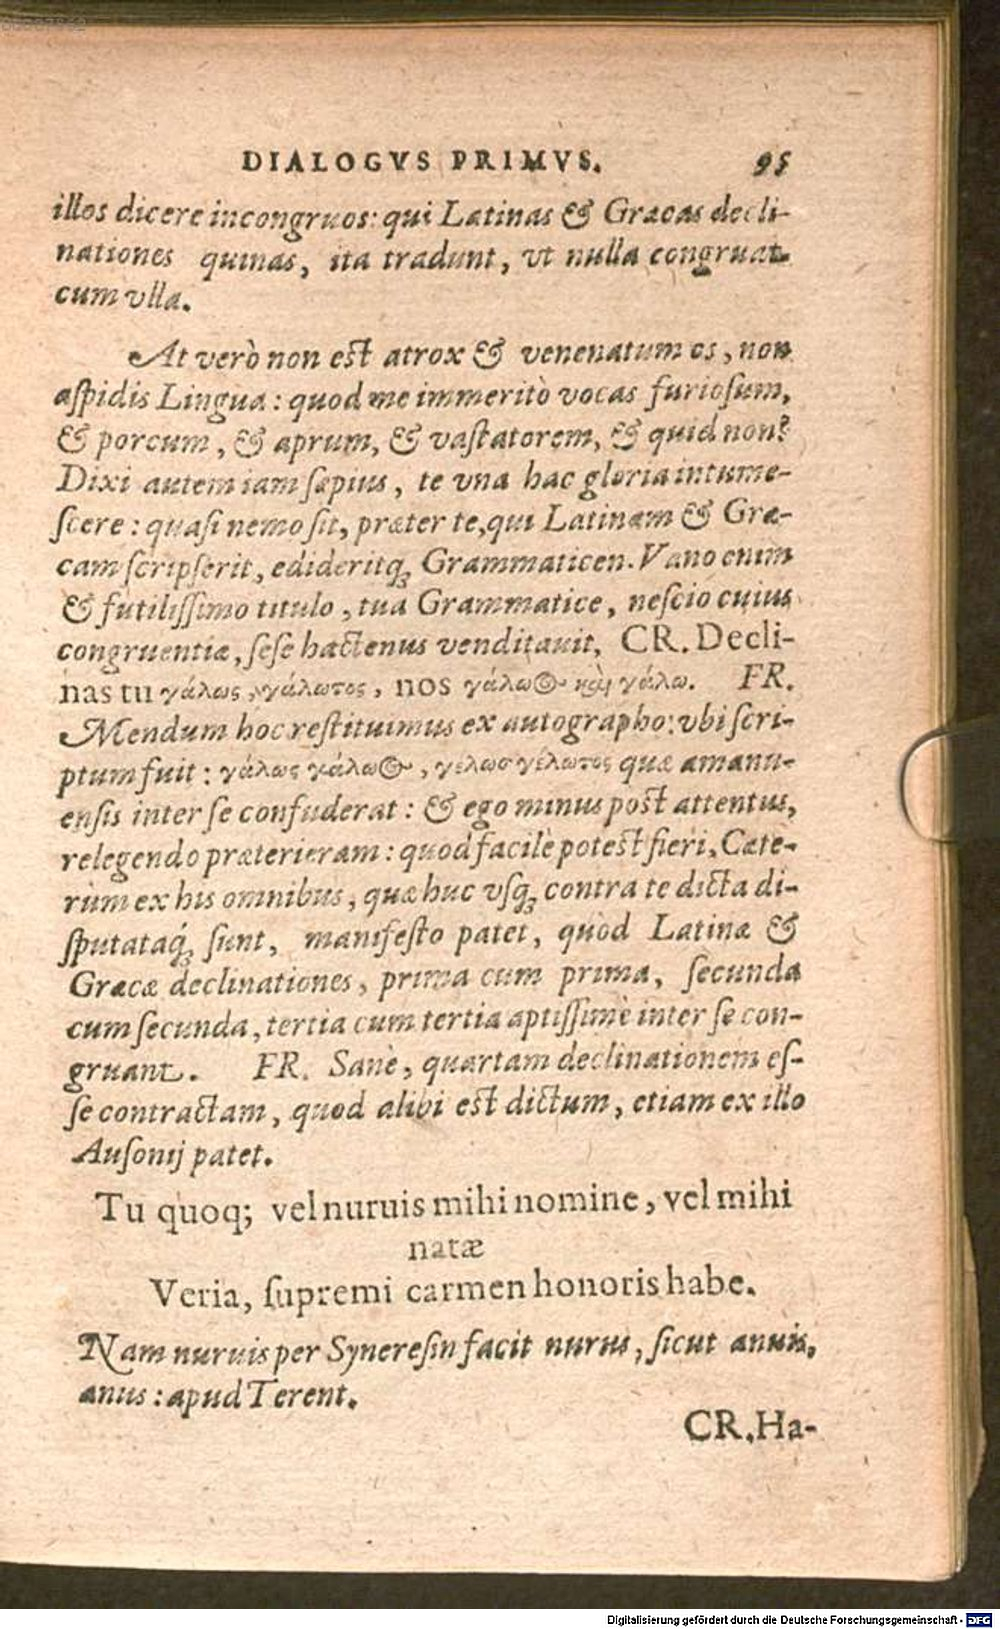 DIALOGVS PRIMVS. 95
illos dicere incongruos: qui Latinas & Græcas decli-
nationes quinas, ita tradunt, vt nulla congruat
cum vlla.
At verò non est atrox & venenatum os, non
aſpidis Lingua: quod me immeritò vocas furioſum,
& porcum, & aprum, & vaſtatorem, & quid non?
Dixi autem iam sæpius, te vna hac gloria intume-
ſcere: quaſi nemo ſit, præter te, qui Latinam & Græ-
cam ſcripſerit, edideritq; Grammaticen. Vano enim
& futiliſſimo titulo, tua Grammatice, neſcio cuius
congruentiæ, ſeſe hactenus venditauit, CR. Decli-
nas tu γάλως, γάλωτος, nos γάλωος καὶ γάλω. FR.
Mendum hoc reſtituimus ex autographo: vbi ſcri-
ptum fuit: γάλως γάλωος, γέλωσ γέλωτος quæ amanu-
enſis inter ſe confuderat: & ego minus poſt attentus,
relegendo præterieram: quod facilè poteſt fieri, Cæte-
rùm ex his omnibus, quæ huc vſq; contra te dicta di-
ſputataq́; ſunt, manifeſto patet, quòd Latinæ &
Græcæ declinationes, prima cum prima, ſecunda
cum ſecunda, tertia cum tertia aptiſſimè inter ſe con-
gruant. FR. Sanè, quartam declinationem eſ-
ſe contractam, quod alibi eſt dictum, etiam ex illo
Auſonij patet.
Tu quoq; vel nuruis mihi nomine, vel mihi
natæ
Veria, ſupremi carmen honoris habe.
Nam nuruis per Syneresin facit nurus, ſicut anuis,
anus: apud Terent.
CR. Ha-
Digitalisierung gefördert durch die Deutsche Forschungsgemeinschaft - DFG